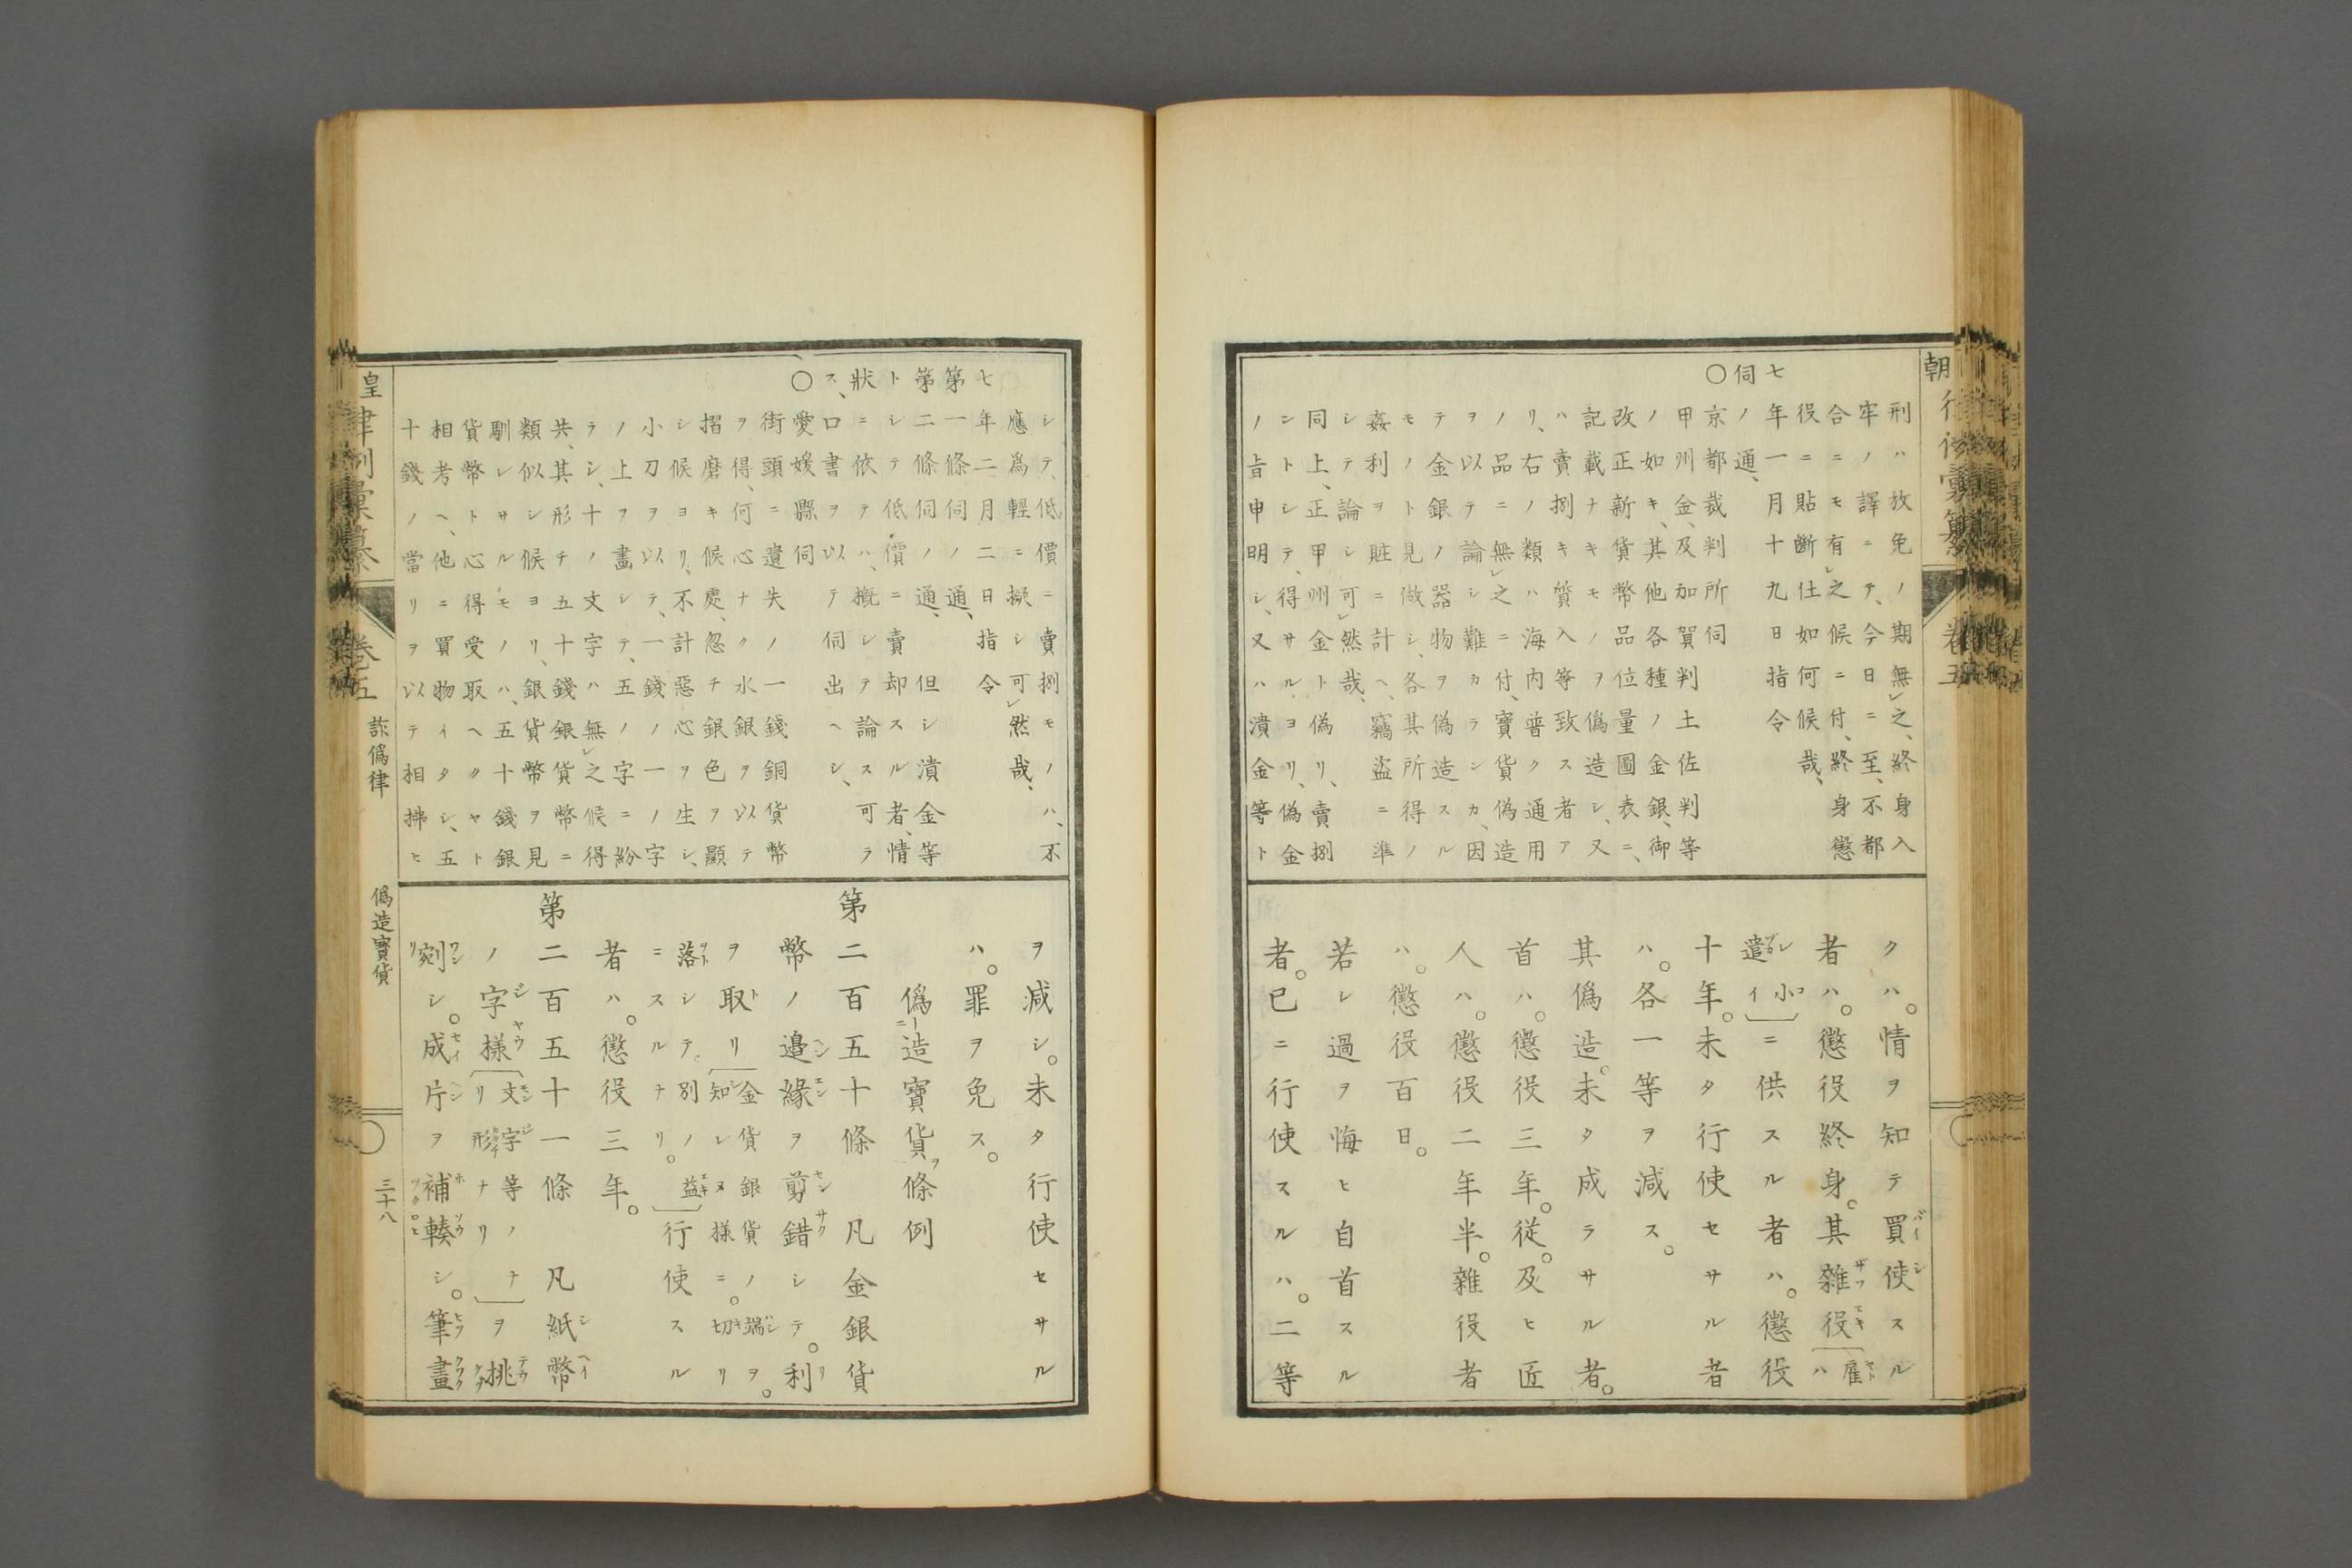 朝行律彙纂 卷五
刑ハ放免ノ期無レ之、終身入
牢ノ譯ニテ、今日ニ至、不都
合ニモ有レ之候ニ付、終身懲
役ニ貼斷仕如何候哉、
七年一月十九日指令
伺ノ通、
○京都裁判所伺
甲州金、及加賀判土佐判等
ノ如キ、其他各種ノ金銀、御
改正新貨幣品位量圖表ニ、
記載ナキモノヲ偽造シ、又
ハ賣捌キ質入等致ス者ア
リ、右ノ類ハ海内普ク通用
ノ品ニ無レ之ニ付、寶貨偽造
ヲ以テ論シ難カラシカ、因
テ金銀ノ器物ヲ偽造スル
モノト見做シ、各其所得ノ
姦利ヲ贓ニ計ヘ、竊盗ニ準
シテ論シ可レ然哉、
同上、正甲州金ト偽リ、賣捌
ントシテ、得サルヨリ、偽金
ノ旨申明シ、又ハ潰金等ト
クハ。情ヲ知テ買使スル
者ハ。懲役終身。其雜役〔雇ハ
レ小遣イ〕ニ供スル者ハ。懲役
十年。未タ行使セサル者
ハ。各一等ヲ減ス。
其偽造。未タ成ラサル者。
首ハ。懲役三年。從。及ヒ匠
人ハ。懲役二年半。雜役者
ハ。懲役百日。
若シ過ヲ悔ヒ自首スル
者。已ニ行使スルハ。二等
シテ、低價ニ賣捌モノハ、不
應爲輕ニ擬シ可レ然哉、
七年二月二日指令
第一條伺ノ通、
第二條伺ノ通、但シ潰金等
トシテ低價ニ賣却スル者、情
狀ニ依テハ、概シテ論ス可ラ
ス、口書ヲ以テ伺出ヘシ、
○愛媛縣伺
街頭ニ遺失ノ一錢銅貨幣
ヲ得、何心ナク水銀ヲ以テ
摺磨キ候處、忽チ銀色ヲ顯
シ候ヨリ、不計惡心ヲ生シ、
小刀ヲ以テ、一錢ノ一ノ字
ノ上ヲ畫シテ、五ノ字ニ紛
ラシ、十ノ文字ハ無レ之候得
共、其形チ五十錢銀貨幣ニ
類似シ候ヨリ、銀貨幣ヲ見
馴レサルモノハ、五十錢銀
貨幣ト心得受取ヘクヤト
相考ヘ、他ニ買物イタシ、五
十錢ノ當リヲ以テ相拂ヒ
ヲ減シ。未タ行使セサル
ハ。罪ヲ免ス。
僞造寶貨條例
第二百五十條 凡金銀貨
幣ノ邉緣ヲ剪錯シテ。利
ヲ取リ〔金貨銀貨ノ端ヲ。知レヌ様ニ。切リ
落シテ。別ニスルナリ。〕行使スル
者ハ。懲役三年。
第二百五十一條 凡紙幣
ノ字樣〔文字等ノナリ形ナリ〕ヲ挑
剜シ。成片ヲ補輳シ。筆畫
皇律例彙纂 卷五 詐僞律 僞造寶貨 三十八